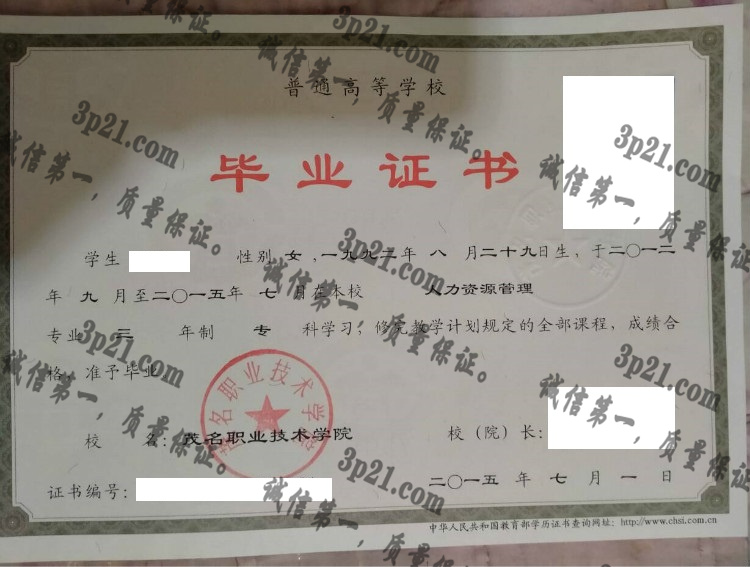 普通高等学校
毕业证书
学生 性别 女，一九九二年 八 月二十九日生，于二〇一二
年 九 月至二〇一五年 七 月在本校 人力资源管理
专业 三 年制 专 科学习，修完教学计划规定的全部课程，成绩合
格，准予毕业
茂名职业技术学院
校 名：茂名职业技术学院 校（院）长：
证书编号： 二〇一五 年 七 月 一 日
中华人民共和国教育部学历证书查询网址：http://www.chsi.com.cn
3p21.com
诚信第一，质量保证。
3p21.com
诚信第一，质量保证。
3p21.com
诚信第一，质量保证。
3p21.com
诚信第一，质量保证。
3p21.com
诚信第一，质量保证。
3p21.com
诚信第一，质量保证。